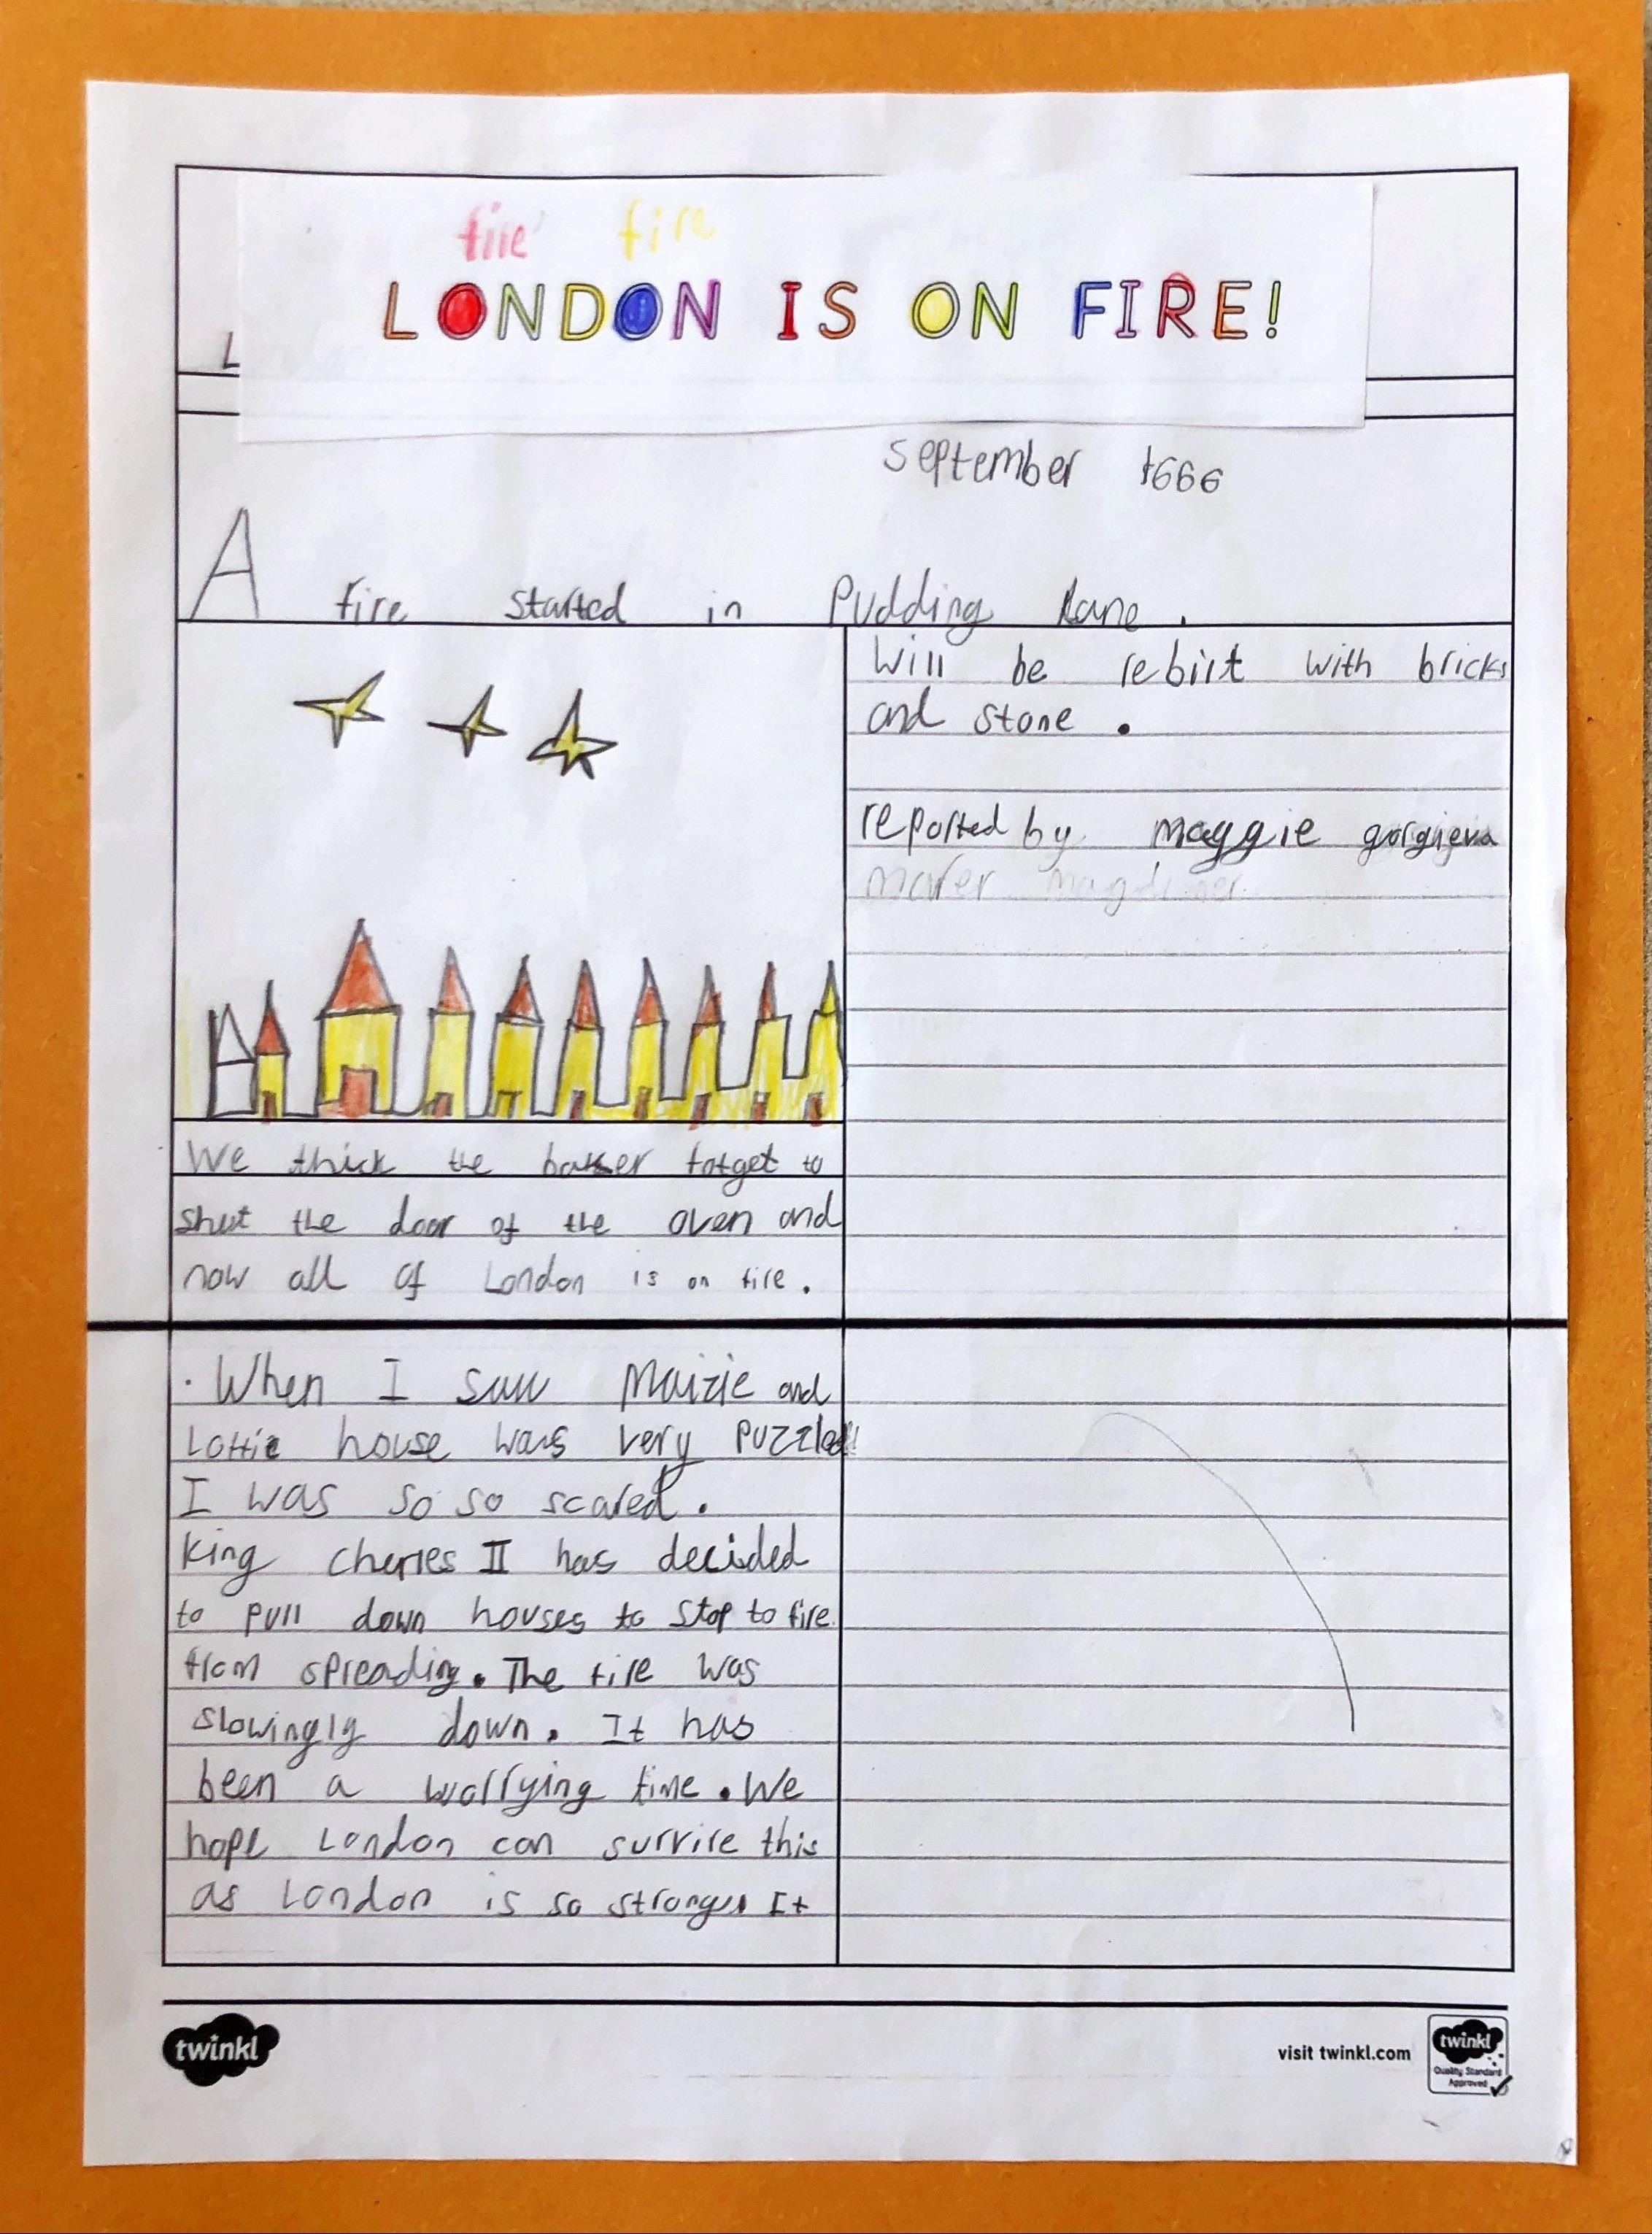 fire fire
LONDON IS ON FIRE!
L
September 1666
A fire started in Pudding Lane.
We thick the baker forget to
shut the door of the oven and
now all of London is on fire.
. When I saw Maizie and
Lottie house was very puzzled!!
I was so so scared.
king cherles II has decided
to pull down houses to stop to fire
from spreading. The fire was
slowingly down. It has
been a worrying time. We
hope London can survire this
as London is so strong. It
will be rebirt with bricks
and stone.
reported by maggie gorgieva
twinkl
visit twinkl.com
twinkl
Quality Standard
Approved